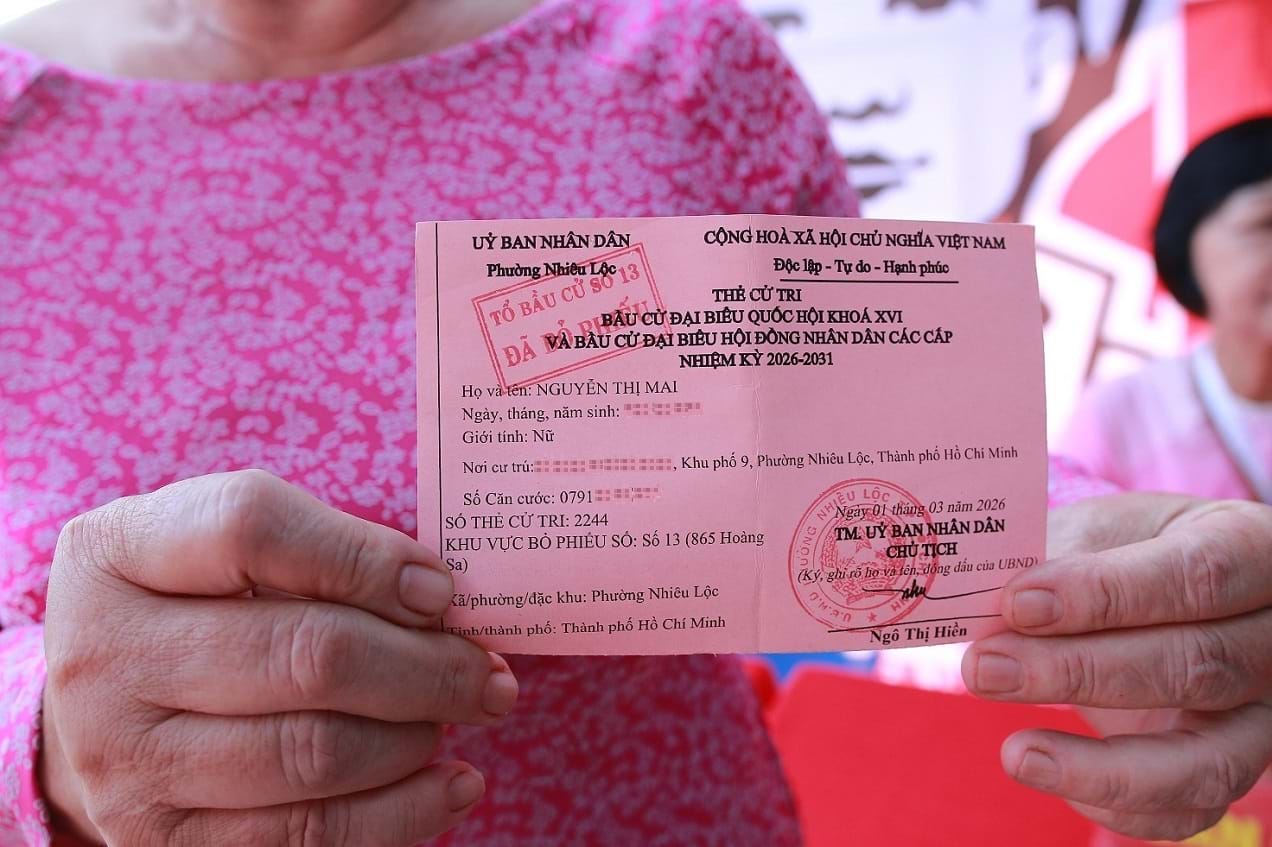 UỶ BAN NHÂN DÂN
Phường Nhiêu Lộc
CỘNG HOÀ XÃ HỘI CHỦ NGHĨA VIỆT NAM
Độc lập - Tự do - Hạnh phúc
TỔ BẦU CỬ SỐ 13
ĐÃ BỎ PHIẾU
THẺ CỬ TRI
BẦU CỬ ĐẠI BIỂU QUỐC HỘI KHOÁ XVI
VÀ BẦU CỬ ĐẠI BIỂU HỘI ĐỒNG NHÂN DÂN CÁC CẤP
NHIỆM KỲ 2026-2031
Họ và tên: NGUYỄN THỊ MAI
Ngày, tháng, năm sinh:
Giới tính: Nữ
Nơi cư trú: , Khu phố 9, Phường Nhiêu Lộc, Thành phố Hồ Chí Minh
Số Căn cước: 0791
SỐ THẺ CỬ TRI: 2244
KHU VỰC BỎ PHIẾU SỐ: Số 13 (865 Hoàng
Sa)
Xã/phường/đặc khu: Phường Nhiêu Lộc
Tỉnh/thành phố: Thành phố Hồ Chí Minh
Ngày 01 tháng 03 năm 2026
TM. UỶ BAN NHÂN DÂN
CHỦ TỊCH
(Ký, ghi rõ họ và tên, đóng dấu của UBND)
Ngô Thị Hiền